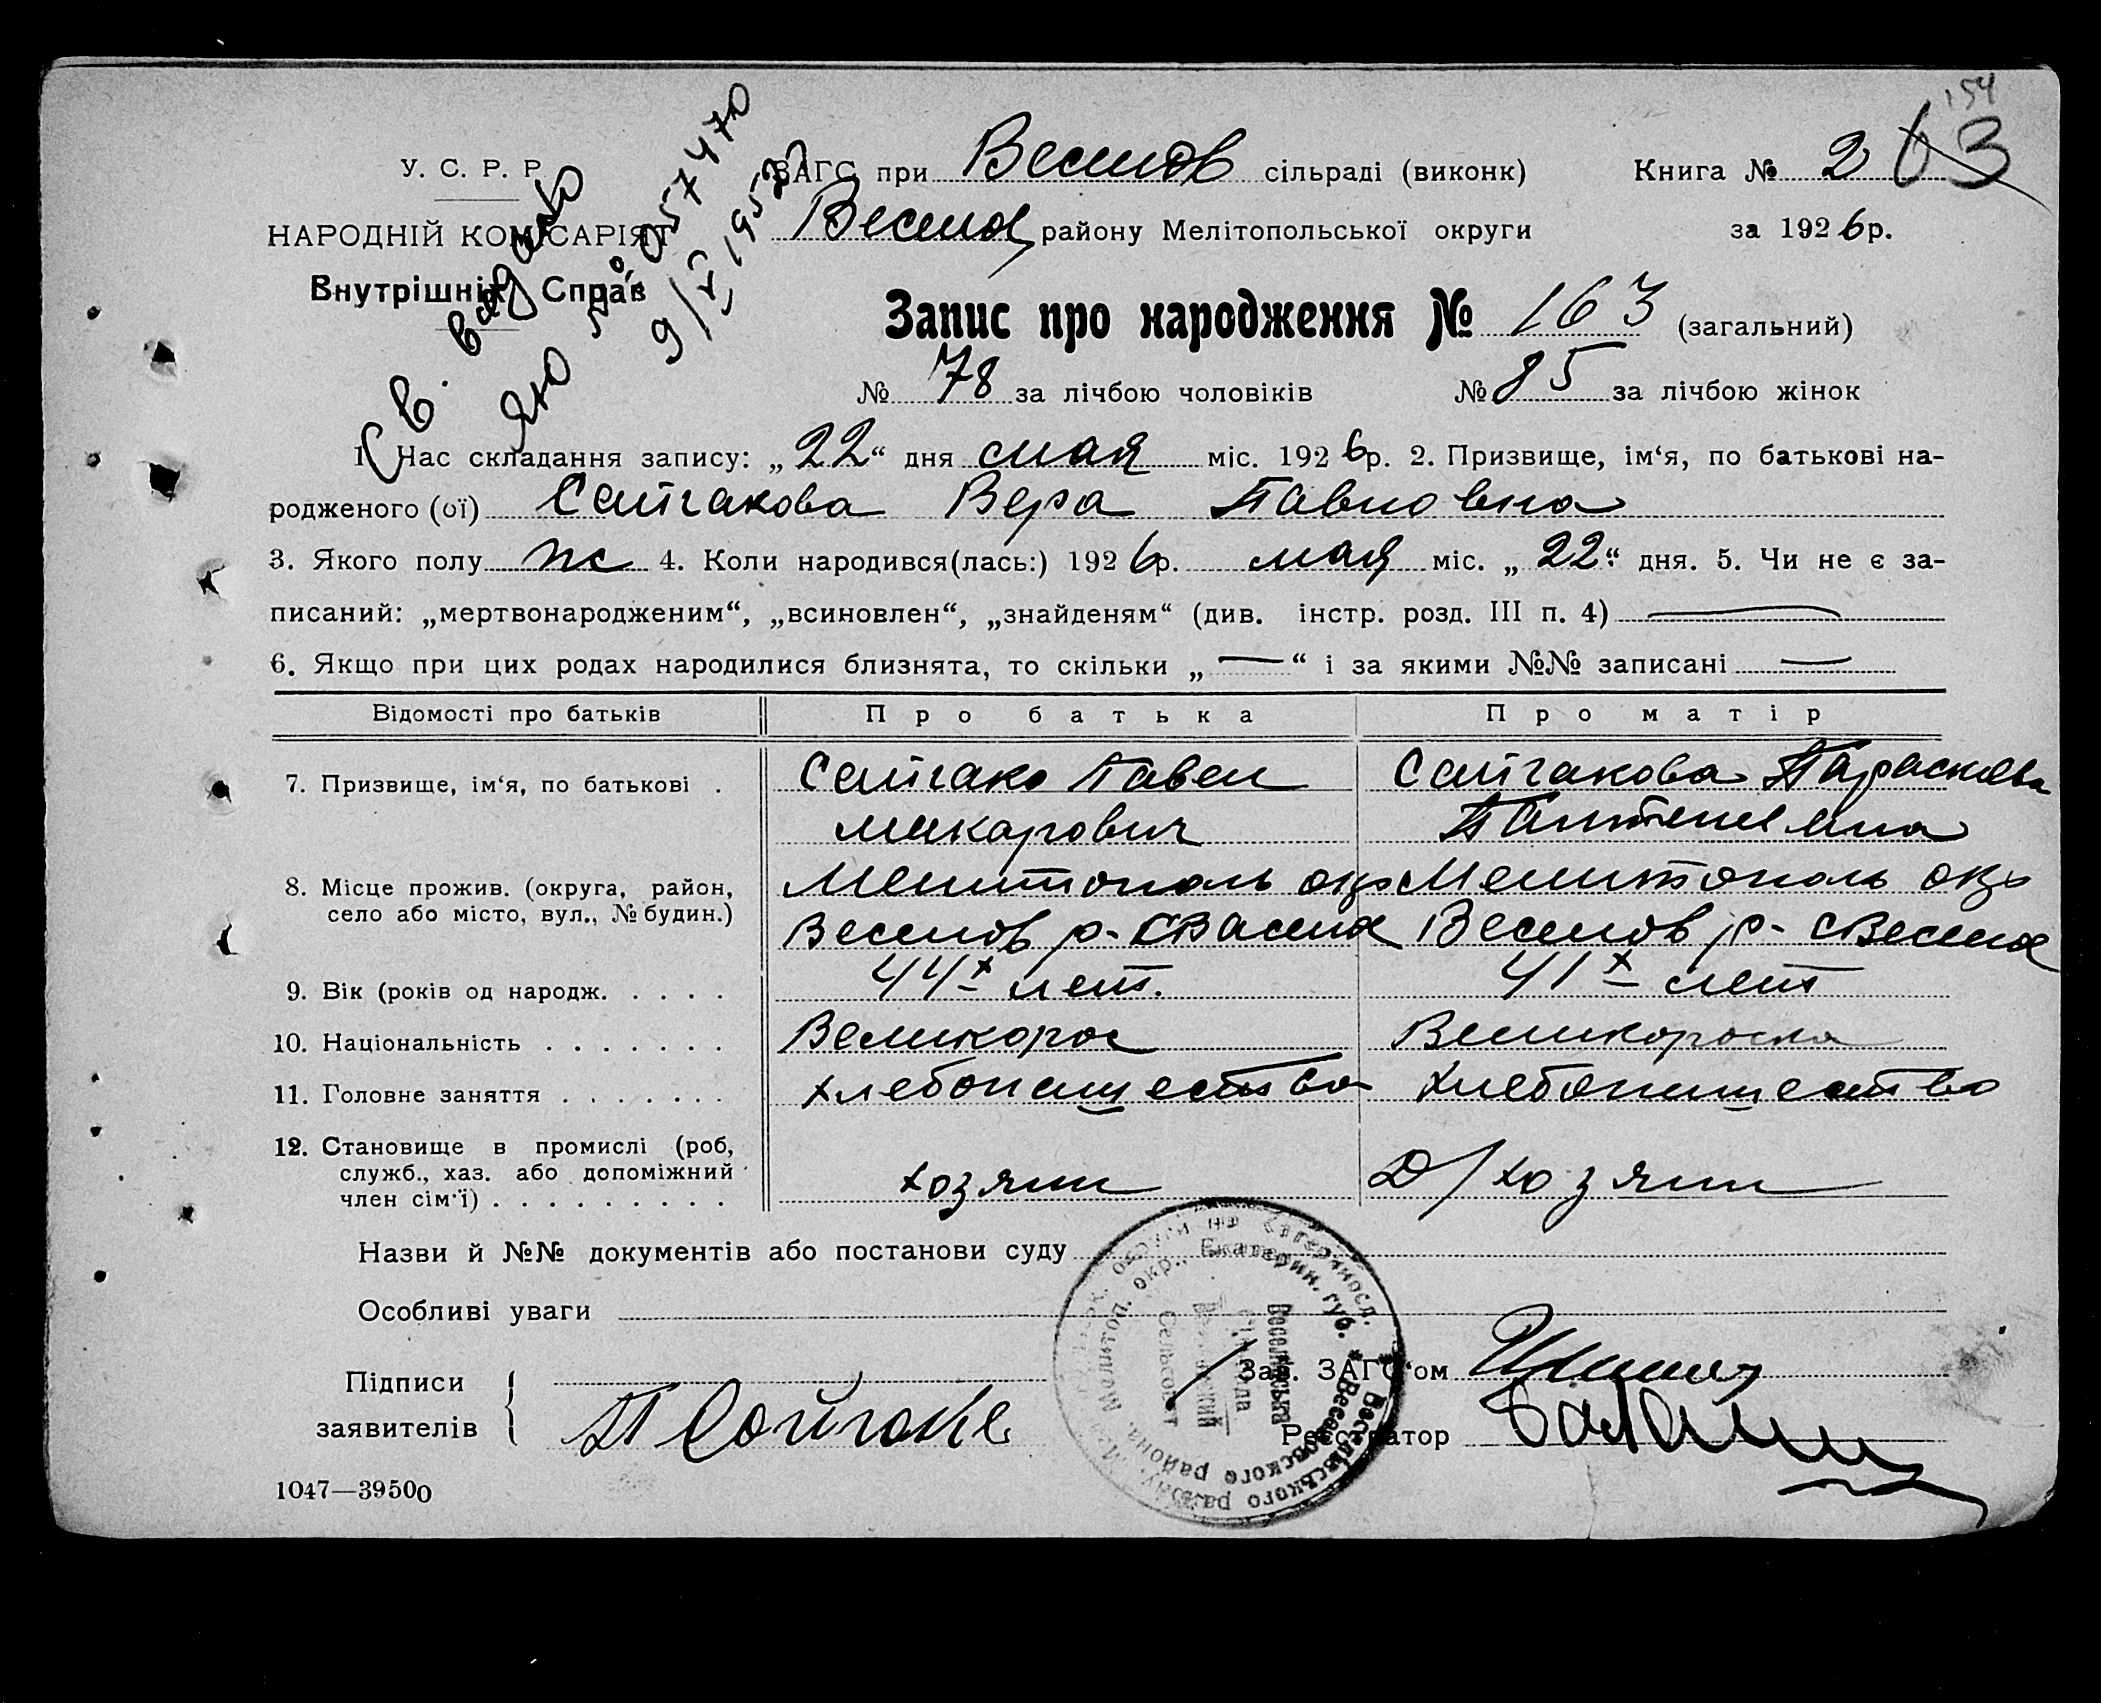 154
У. С. Р. Р.
НАРОДНІЙ КОМІСАРІЯТ
Внутрішніх Справ
Св. выдано
ЯЮ № 057470
9/V 1952
ЗАГС при Веселов сільраді (виконк)
Книга № 2 63
Весел району Мелітопольської округи
за 1926 р.
Запис про народження № 163 (загальний)
№ 78 за лічбою чоловіків № 85 за лічбою жінок
1. Час складання запису: „22“ дня мая міс. 1926 р. 2. Призвище, ім‘я, по батькові на-
родженого (ої) Сайгакова Вера Павловна
3. Якого полу ж 4. Коли народився(лась:) 1926 р. мая міс. „22“ дня. 5. Чи не є за-
писаний: „мертвонародженим“, „всиновлен“, „знайденям“ (див. інстр. розд. III п. 4) —
6. Якщо при цих родах народилися близнята, то скільки „—“ і за якими №№ записані —
Відомості про батьків Про батька Про матір
7. Призвище, ім‘я, по батькові . Сайгако Павел Сайгакова Параскева
Макарович
8. Місце прожив. (округа, район, Мелитополь окр Мелитополь окр
село або місто, вул., № будин.) Веселов р- Веселов р- с Весела
9. Вік (років од народж. . . . . 44х лет. 41х лет
10. Національність . . . . . . . Великорос Великороска
11. Головне заняття . . . . . . . хлебопашество хлебопашество
12. Становище в промислі (роб,
служб., хаз. або допоміжний
член сім‘ї) . . . . . . . . . хозяин Д/хозяин
Назви й №№ документів або постанови суду
Особливі уваги
Екатерин. губ. * Веселовского района, Мелитоп. окр.,
Веселівська
Сільрада
Сельсовет
Підписи
заявителів
П Сайгако
Зав. ЗАГС‘ом
Реєстратор
1047—39500